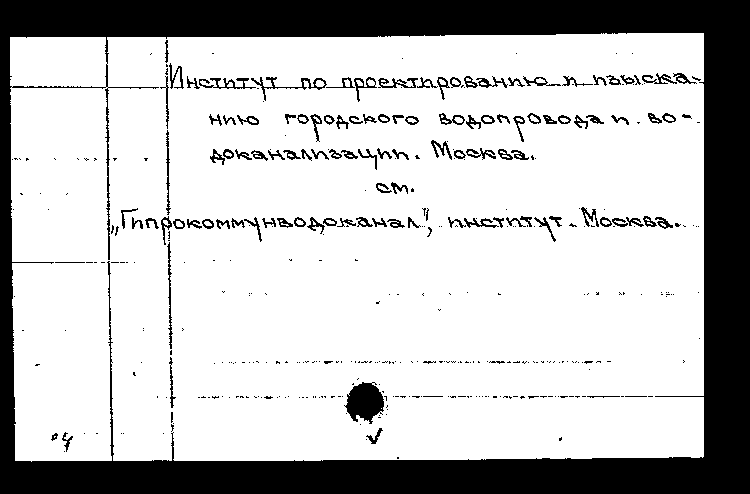 Институт по проектированию и изыска-
нию городского водопровода и во-
доканализации. Москва.
см.
„Гипрокоммунводоканал", институт. Москва.